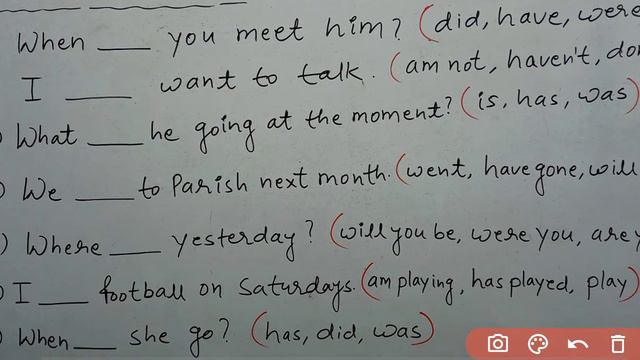 When ___ you meet him? (did, have, were
I ___ want to talk. (am not, haven't, don
What ___ he going at the moment? (is, has, was)
We ___ to Parish next month. (went, have gone, will
) Where ___ yesterday? (will you be, were you, are y
I ___ football on Saturdays. (am playing, has played, play)
When ___ she go? (has, did, was)